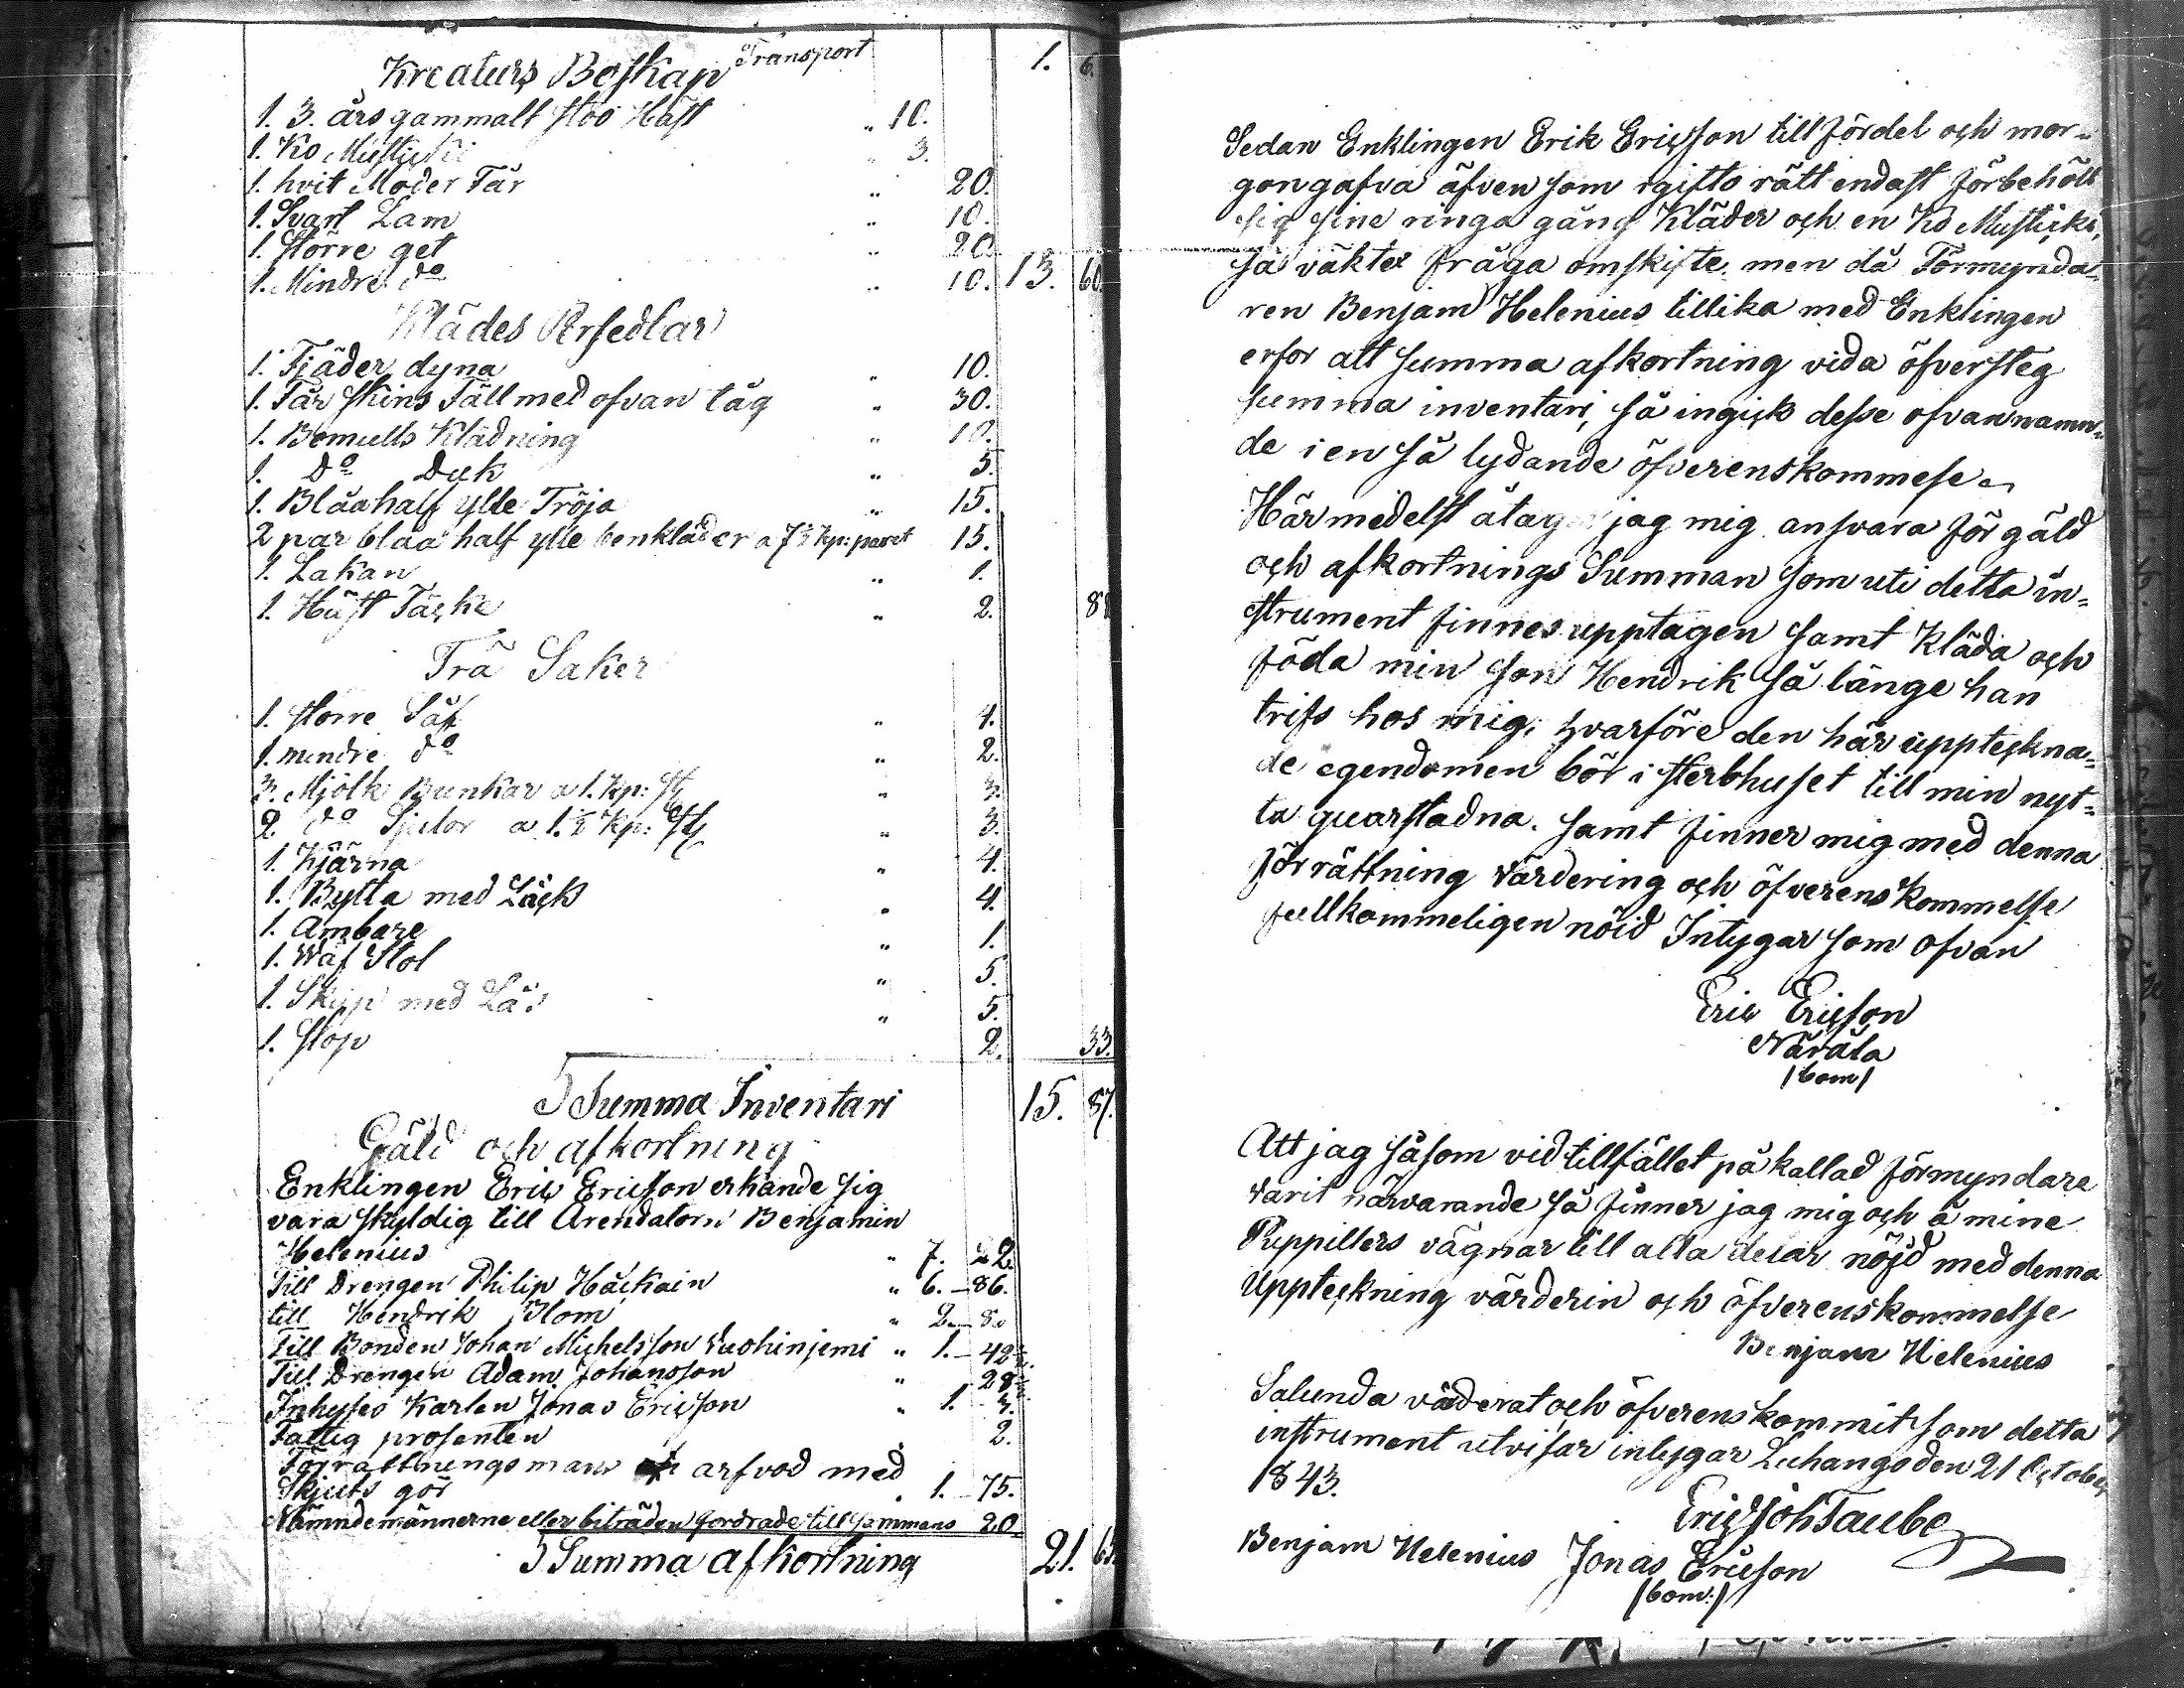 Transport 1. 6.
Kreaturs Boskap
1. 3. års gammalt stoo Häst " 10.
1. Ko Musticki " 3.
1. hvit Moder Får " 20.
1. Svart Lam " 10.
1. större get " 20.
1. Mindre do " 10. 13. 60.
Klädes Persedlar
1. Fjäder dyna " 10.
1. Får skins Fäll med ofvan tåg " 30.
1. Bomulls Klädning " 10.
1. Do Duk " 5.
1. Blåa half ylle Tröja " 15.
2 par blåa half ylle benkläder a 7½ kp: paret 15.
1. Lakan " 1.
1. Häst Täcke " 2. 88
Trä Saker
1. storre Såf " 4.
1. mindre do " 2.
3. Mjölk Bunkar a 1. kp: St " 3.
2. do Sjulor a 1.½ kp: St " 3.
1. Kjärna " 4.
1. Bytta med Läck " 4.
1. Ämbare " 1.
1. Wäf Stol " 5.
1. Skåp med Lås " 5.
1. Stop " 2. 33.
Summa Inventari 15. 87.
Gäld och afkortning
Enklingen Eric Ericsson erkände sig
vara skyldig till Arendatorn Benjamin
Helenius " 7. 22
Till Drengen Philip Häckäin " 6. – 86.
till Hendrik Blom " 2. – 8.
Till Bonden Johan Michelsson Vuohinjemi " 1. – 42
Till Drengen Adam Johansson " 28
Inhyses Karlen Jonas Ericson " 1. – 3.
Fattig prosenten " 2.
Förrättningsmans arfvod med
Skjuts gör " 1. – 75.
Nämndemännerne eller biträden fordrade tillsammans 20.
Summa afkortning 21. 65
Sedan Enklingen Erik Ericsson till fördel och mor-
gongafva äfven som giftorätt endast förbehölt
sig sine ringa gång Kläder och en Ko Musticki,
så väktes fråga om skifte. men då Förmynda-
ren Benjam Helenius tillika med Enklingen
erfor att summa afkortning vida öfversteg
summa inventari, så ingick desse ofvannamn-
de i en så lydande öfverenskommese
Härmedelst åtager jag mig ansvara för gäld
och afkortnings Summan som uti detta in-
strument finnes upptagen samt kläda och
föda min son Hendrik så länge han
trifs hos mig, hvarföre den här uppteckna-
de egendomen bör i sterbhuset till min nyt-
ta quarstadna. samt finner mig med denna
förrättning värdering och öfverenskommelse
fullkommeligen nöid Intygar som ofvan
Eric Ericson
Närälä
(bom)
Att jag såsom vid tillfället påkallad förmyndare
varit närvarande så finner jag mig och å mine
Puppillers vägnar till alla delar nöjd med denna
uppteckning värderin och öfverenskommelse
Benjam Helenius
Salunda väderat och öfverenskommit som detta
instrument utvisar intygar Luhango den 21 October
1843.
Eric Joh Taube
Benjam Helenius Jonas Ericson
(bom:)